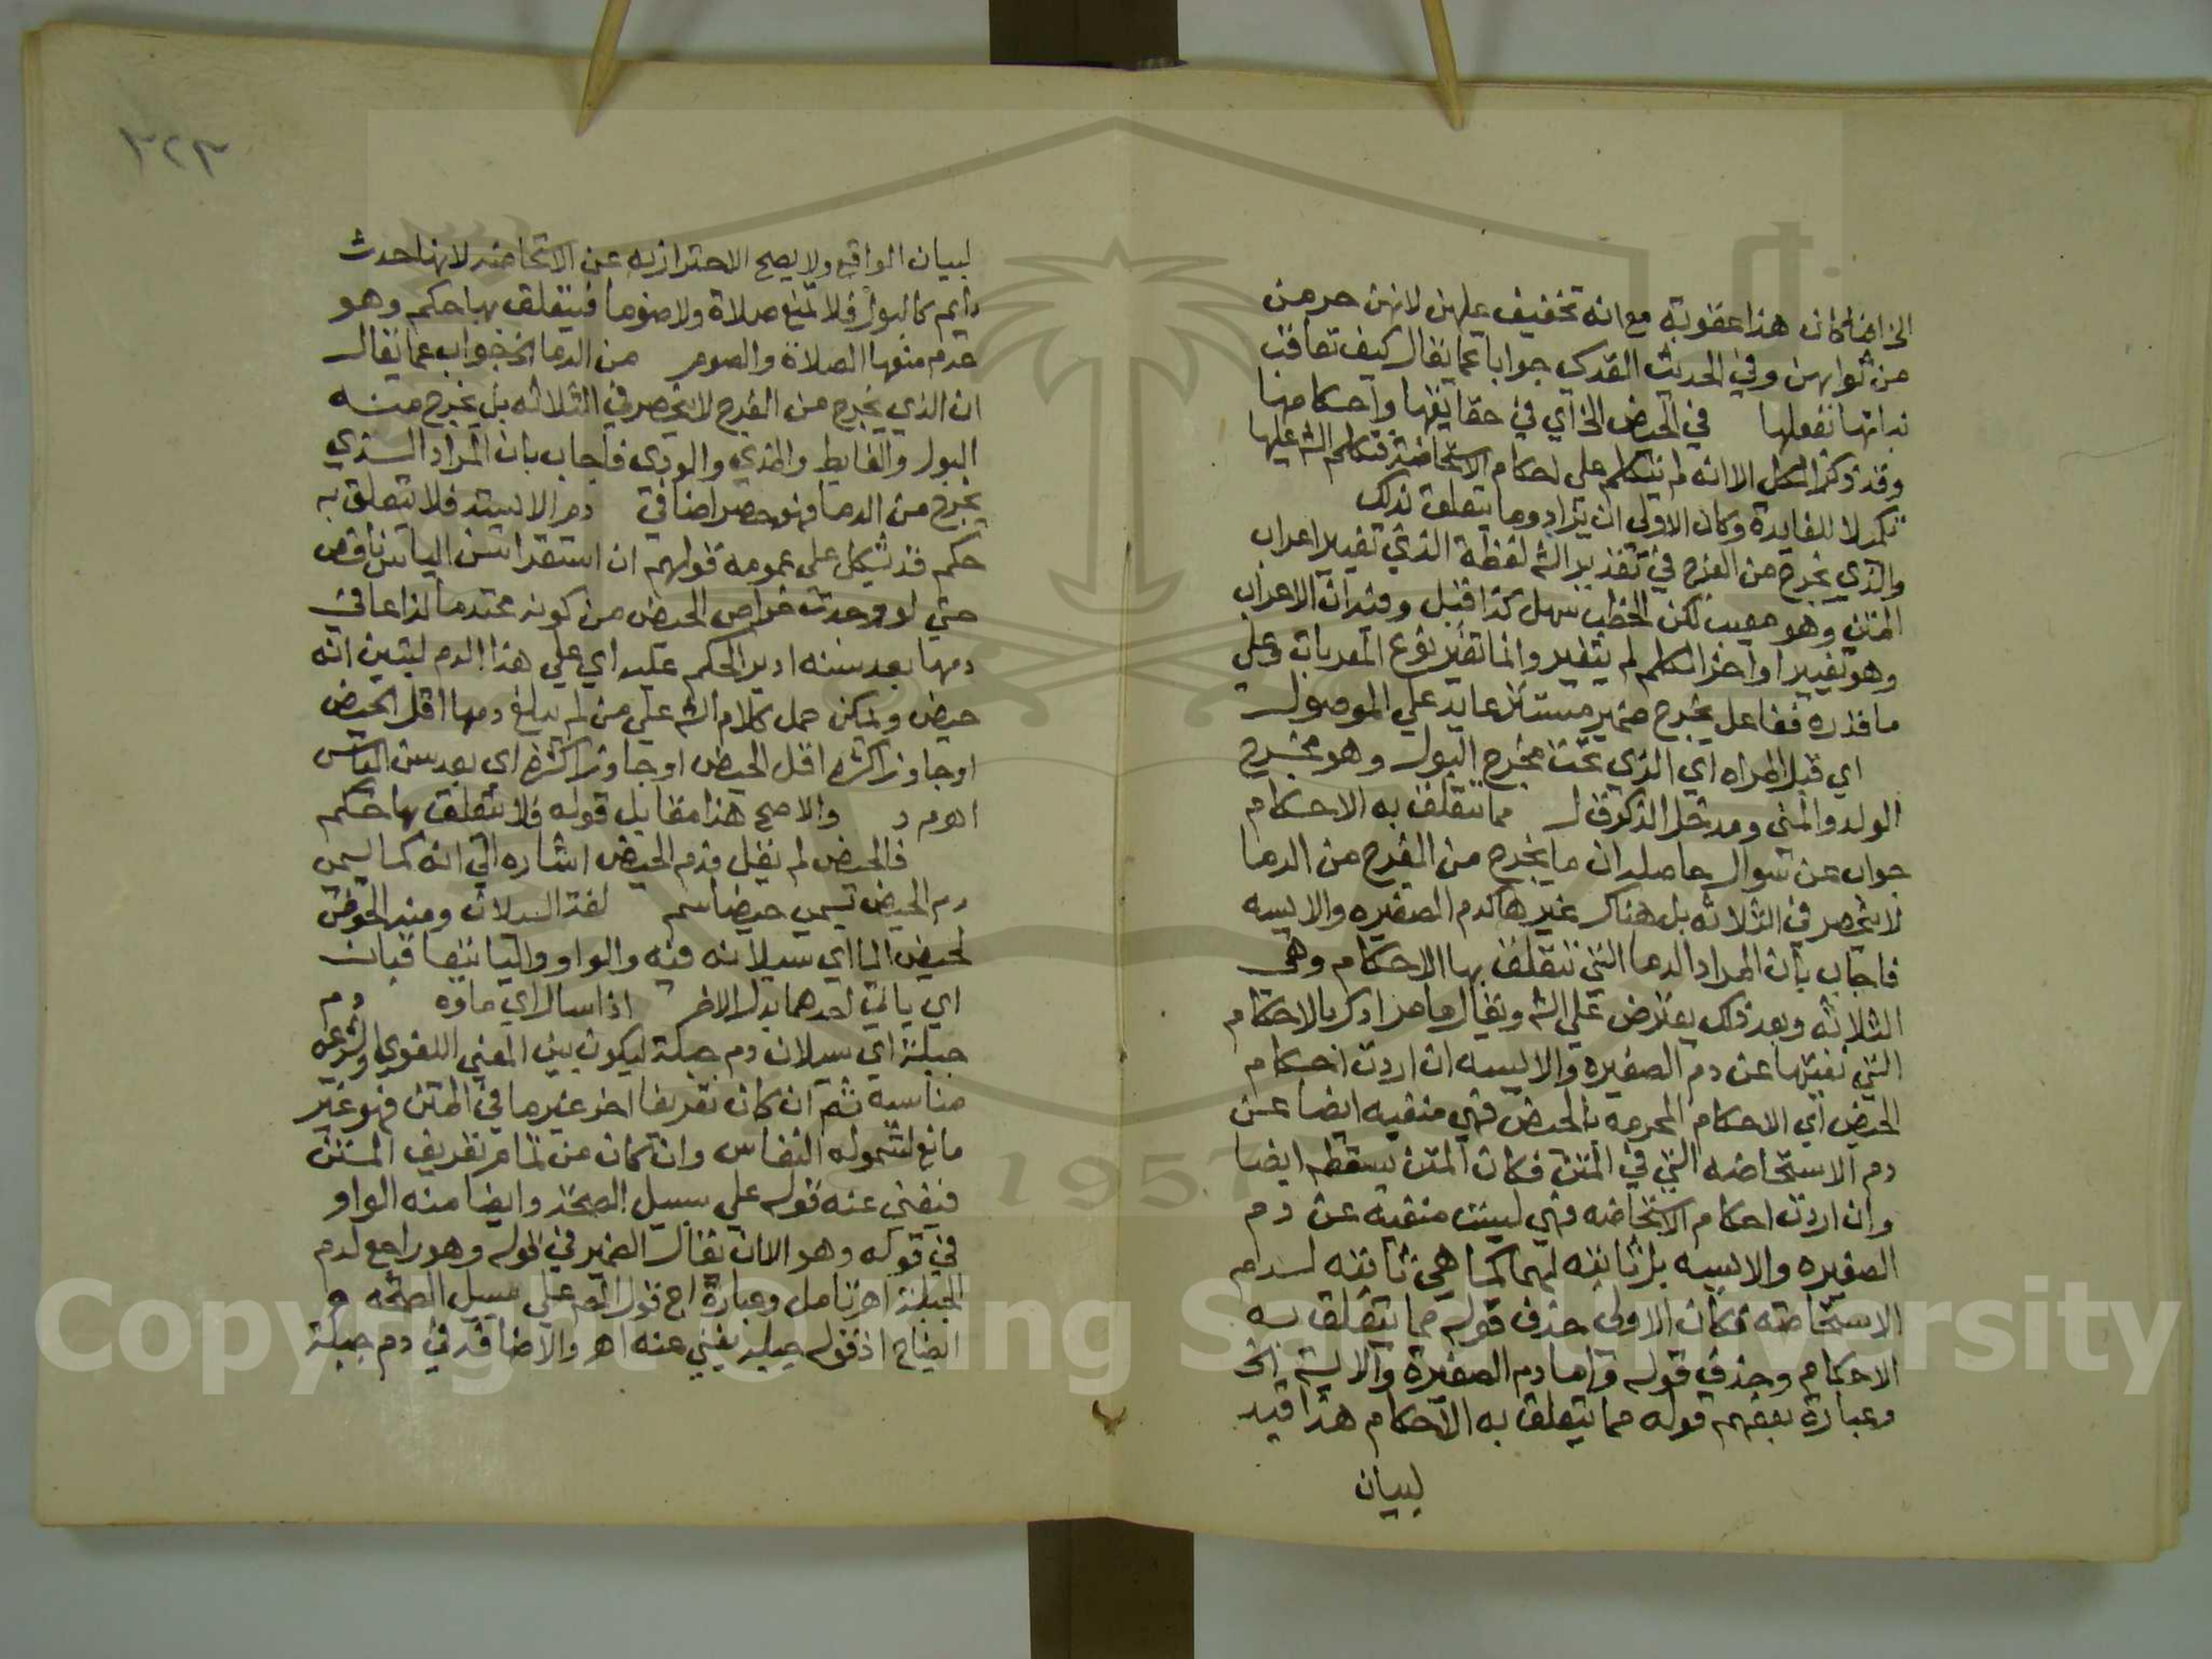 الخ انما كان هذا عقوبة مع انه تخفيف عليهن لانهن حرمن
من ثوابهن وفي الحديث القدسي جوابا عما يقال كيف تعاقب
بداتها بفعلها في الحيض الخ اي في حقايقها واحكامها
وقد ذكر الكل الا انه لم يتكلم على احكام الاستحاضة فتكلم الش عليها
تكملا للفايدة وكان الاولى ان يزاد وما يتعلق بذلك
والذي يخرج من الفرج في تقدير الش لفظة الذي تغيير اعراب
المتن وهو معيب لكن الخطب سهل كذا قيل وفيه ان الاعراب
وهو تغيير اواخر الكلم لم يتغير وانما تغير نوع المعربات وعلى
ما قدره ففاعل يخرج ضمير مستتر عايد علي الموصول
اي قبل المراه اي الذي تحت مخرج البول وهو مخرج
الولد والمني ومدخل الذكر ق ل مما تتعلق به الاحكام
جواب عن سوال حاصله ان ما يخرج من الفرج من الدما
لا ينحصر في الثلاثه بل هناك غيرها كدم الصغيره والايسه
فاجاب بان المراد الدما التي تتعلق بها الاحكام وهي
الثلاثه وبعد ذلك يعترض علي الش ويقال ما مرادك بالاحكام
التي نفيتها عن دم الصغيره والايسه ان اردت احكام
الحيض اي الاحكام المحرمه بالحيض فهي منفيه ايضا عن
دم الاستحاضه التي في المتن فكان المتن يسقطه ايضا
وان اردت احكام الاستحاضه فهي ليست منفيه عن دم
الصغيره والايسه بل ثابته لهما كما هي ثابته لدم
الاستحاضه فكان الاولى حذف قوله مما يتعلق به
الاحكام وحذف قوله واما دم الصغيرة والايسة الخ
وعبارة بعضهم قوله مما يتعلق به الاحكام هذا قيد
لبيان
٣٢٣
لبيان الواقع ولا يصح الاحتراز به عن الاستحاضه لانها حدث
دايم كالبول فلا تمنع صلاة ولا صوما فيتعلق بها حكم وهو
عدم منعها الصلاة والصوم من الدما الخ جواب عما يقال
ان الذي يخرج من الفرج لا ينحصر في الثلاثه بل يخرج منه
البول والغايط والمذي والودي فاجاب بان المراد الذي
يخرج من الدما فهو حصر اضافي دم الايسة فلا تتعلق به
حكم قد يشكل على عمومه قولهم ان استقرا سن الياس ناقص
حتي لو وجدت خواص الحيض من كونه محتدما لذاعا في
دمها بعد سنه ادير الحكم عليه اي علي هذا الدم ليتبين انه
حيض ويمكن حمل كلام الش علي من لم يبلغ دمها اقل الحيض
او جاوز اكثره اقل الحيض او جاوز اكثره اي بعد سن الياس
اه م د والاصح هذا مقابل قوله فلا يتعلق بها حكم
فالحيض لم يقل فدم الحيض اشاره الي انه كما يسمى
دم الحيض يسمى حيضا سم لغة السيلان ومنه الحوض
لحيض الما اي سيلانه فيه والواو واليا يتعاقبان
اي ياتي احدهما بدل الاخر اذا سال اي ماوه دم
جبلة اي سيلان دم جبلة ليكون بين المعني اللغوي والشرعي
مناسبه ثم ان كان تعريفا اخر غير ما في المتن فهو غير
مانع لشموله النفاس وان كان من تمام تعريف المتن
فيغني عنه قوله علي سبيل الصحة وايضا منه الواو
في قوله وهو الا ان يقال الضمير في قوله وهو راجع لدم
الجبلة اه تامل وعبارة اج قول المص علي سبيل الصحه
ايضاح اذ قوله جبلة يغني عنه اه والاضافة في دم جبلة
Copyright © King Saud University
1957